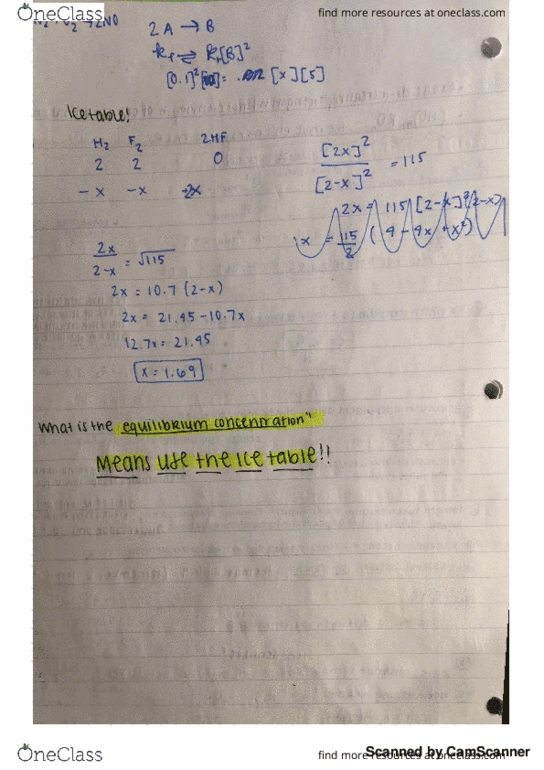 OneClass
find more resources at oneclass.com
2A → B
[0.1]²
[x][5]
Ice table!
H₂ F₂ 2HF
2 2 0
-x -x 2x
[2x]² / [2-x]² = 115
2x = 115 [2-x]² (2-x)
x = 115/2 (4 - 4x + x²)
2x / 2-x = √115
2x = 10.7 (2-x)
2x = 21.45 - 10.7x
12.7x = 21.45
x = 1.69
What is the equilibrium concentration"
Means use the ice table!!
OneClass
find more resources at oneclass.com
Scanned by CamScanner